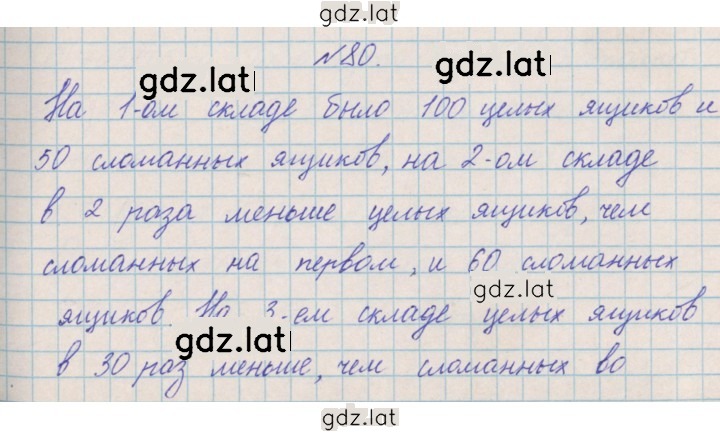 gdz.lat
№80.
gdz.lat gdz.lat
На 1-ом складе было 100 целых ящиков и
50 сломанных ящиков, на 2-ом складе
в 2 раза меньше целых ящиков, чем
сломанных на первом, и 60 сломанных
gdz.lat
ящиков. На 3-ем складе целых ящиков
gdz.lat
в 30 раз меньше, чем сломанных во
gdz.lat